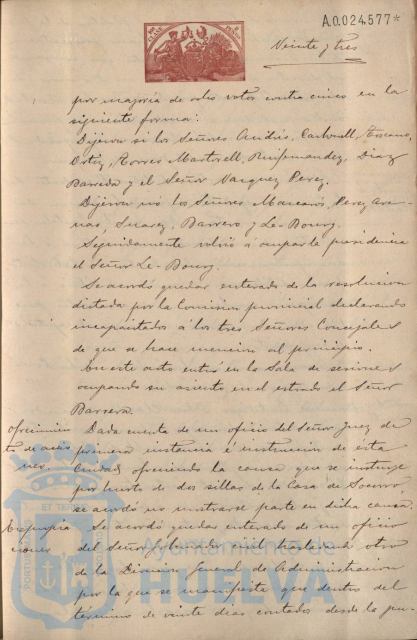 A.0.024.577*
Veinte y tres
por mayoría de ocho votos contra cinco en la
siguiente forma:
Dijeron si los Señores Andrés, Carbonell, Toscano,
Ortiz, Torres Martorell, Ruifernandez, Diaz
Barreda y el Señor Vazquez Perez.
Dijeron nó los Señores Mascarós, Perez Are-
nas, Suarez, Barrero y Le-Bourg.
Seguidamente volvió á ocupar la presidencia
el Señor Le-Bourg.
Se acordó quedar enterado de la resolucion
dictada por la Comision provincial declarando
incapacitados á los tres Señores Concejales
de que se hace mencion al principio.
En este acto entró en la Sala de sesiones
ocupando su asiento en el estrado el Señor
Barrera.
ofrecimien
to de accio
nes
Dada cuenta de un oficio del Señor Juez de
primera instancia é instruccion de ésta
Ciudad ofreciendo la causa que se instruye
por hurto de dos sillas de la Casa de Socorro,
se acordó no mostrarse parte en dicha causa.
Expropia
ciones
Se acordó quedar enterado de un oficio
del Señor Gobernador civil trasladando otro
de la Direccion General de Administracion
por la que se manifiesta que dentro del
término de veinte dias contados desde la pu-
Ayuntamiento de
HUELVA